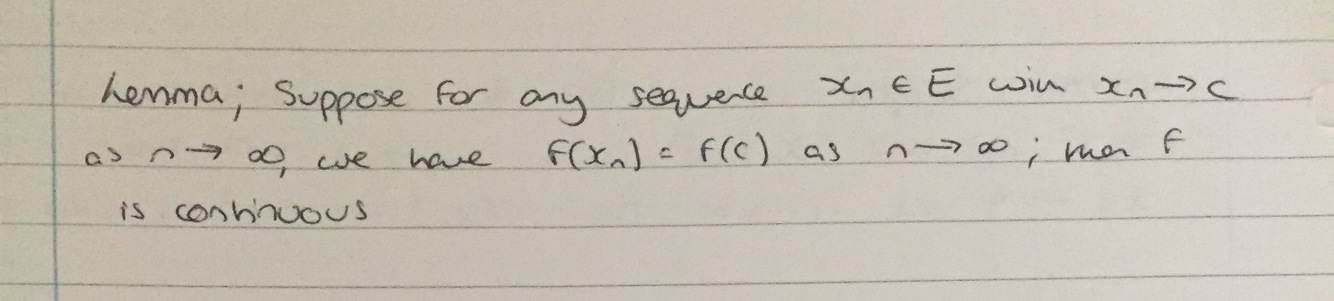 Lemma; Suppose for any sequence xₙ ∈ E with xₙ → c
as n → ∞, we have f(xₙ) = f(c) as n → ∞; then f
is continuous